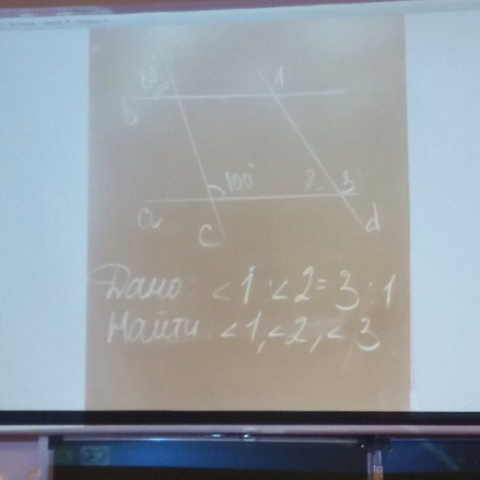 80° 1
b
100° 2 3
a c d
Дано: <1:<2=3:1
Найти: <1,<2,<3